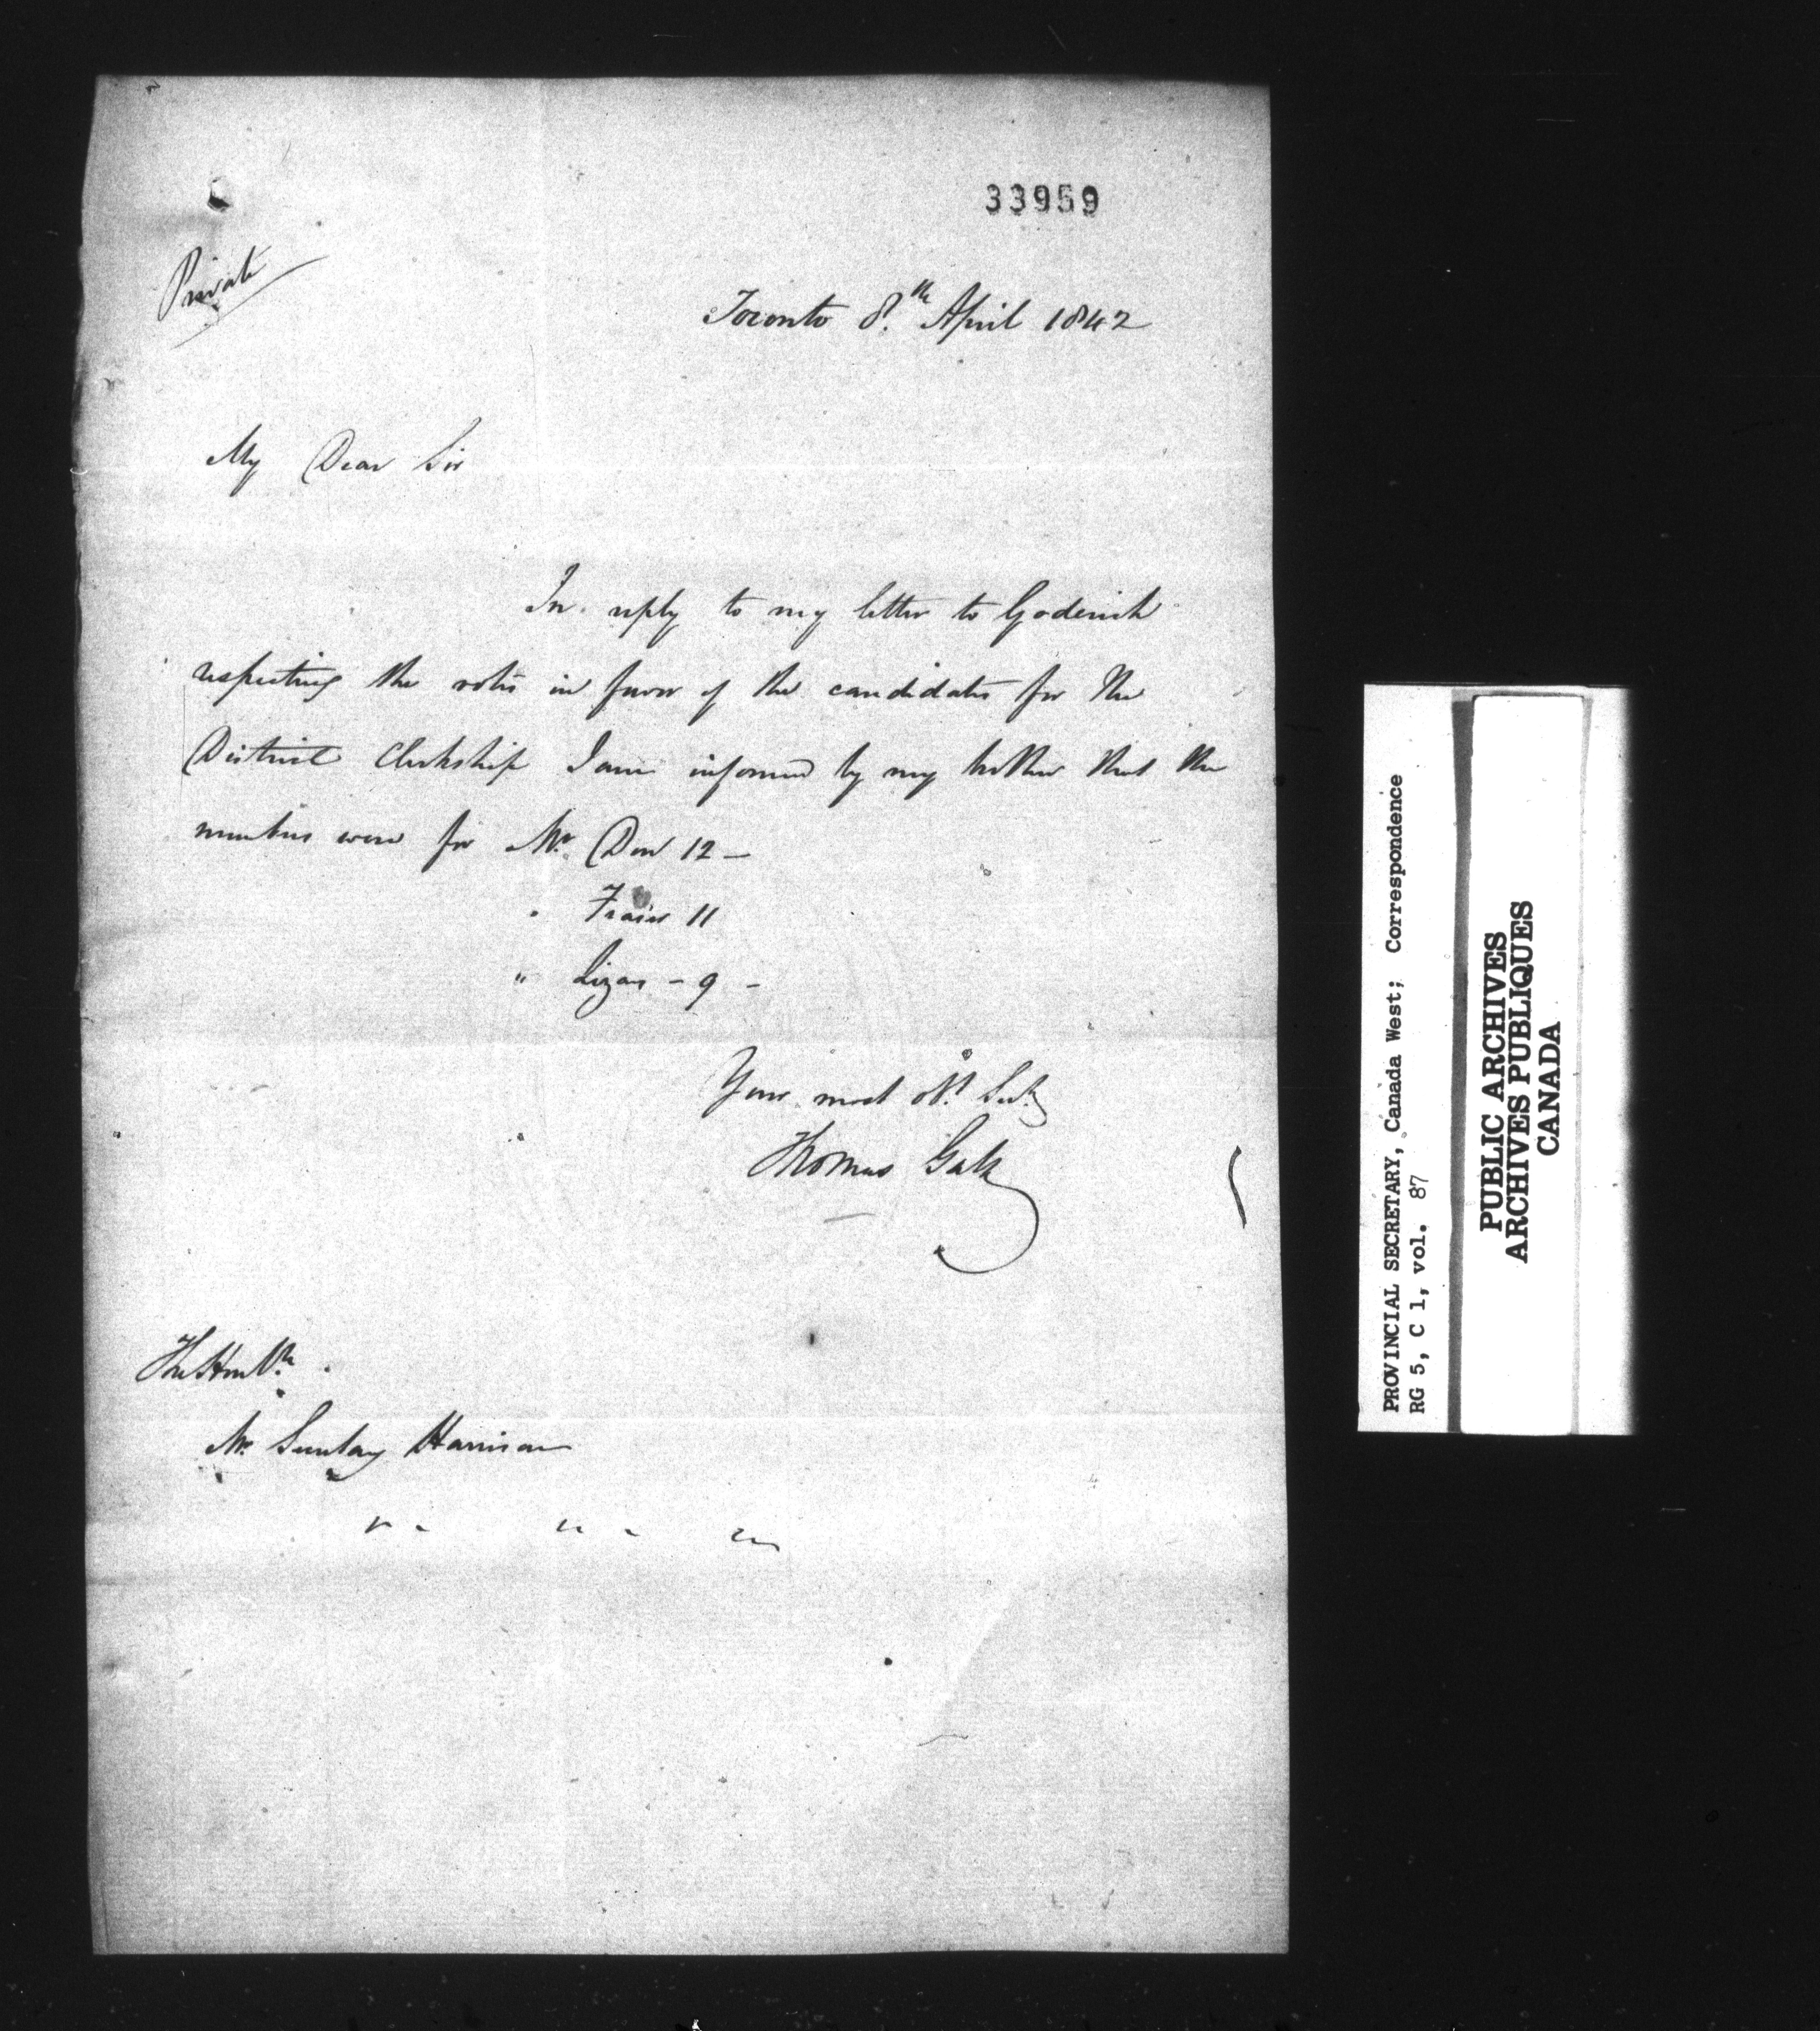 33959
Private
Toronto 8.th April 1842
My Dear Sir
In reply to my letter to Goderich
respecting the votes in favor of the candidates for the
District Clerkship I am informed by my brother that the
numbers were for Mr. Don 12 —
" Fraser 11
" Lizars - 9 -
Your most Obt. Sert.
Thomas Galt
The Honble.
Mr. Secretary Harrison
" - " - "
PROVINCIAL SECRETARY, Canada West; Correspondence
RG 5, C 1, vol. 87
PUBLIC ARCHIVES
ARCHIVES PUBLIQUES
CANADA